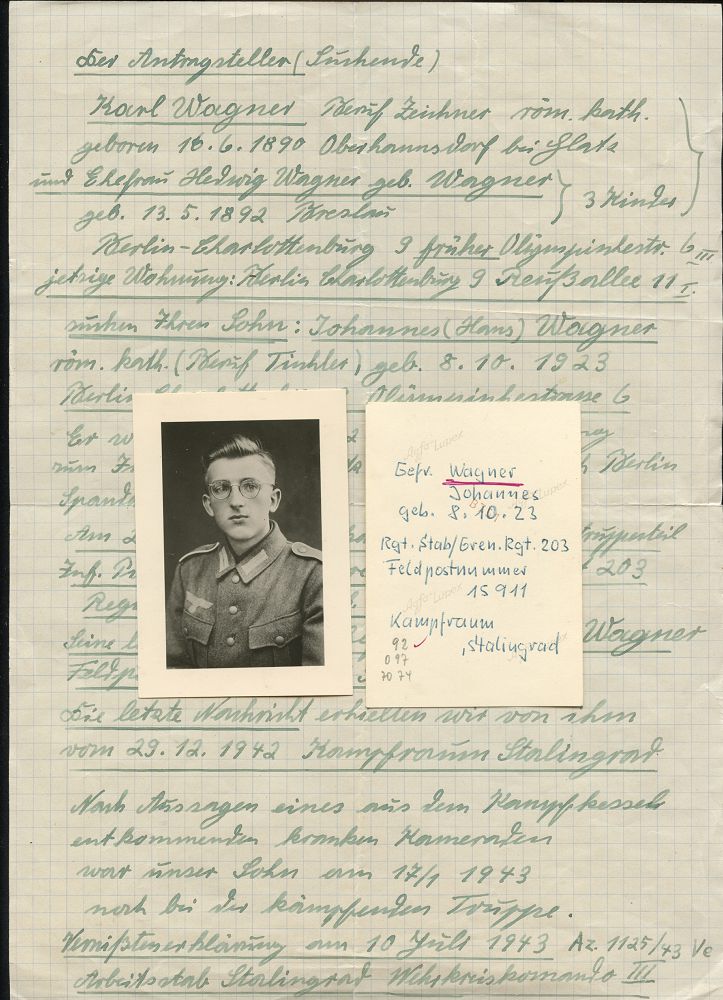 Der Antragsteller (Suchende)
Karl Wagner Beruf Zeichner röm. kath.
geboren 16.6.1890 Oberhannsdorf bei Glatz
und Ehefrau Hedwig Wagner geb. Wagner
geb. 13.5.1892 Breslau
3 Kinder
Berlin-Charlottenburg 9 früher Olympischestr. 6 III
jetzige Wohnung: Berlin Charlottenburg 9 Preußallee 11 I.
suchen Ihren Sohn: Johannes (Hans) Wagner
röm. kath. (Beruf Tischler) geb. 8.10.1923
Berlin Olympischestrasse 6
Er
zum Berlin
Spanda
Am truppenteil
Inf. 203
Regi
Seine l Wagner
Feldp
Die letzte Nachricht erhielten wir von ihm
vom 29.12.1942 Kampfraum Stalingrad
Nach Aussagen eines aus dem Kampfkessel
entkommenden kranken Kameraden
war unser Sohn am 17/1 1943
noch bei der kämpfenden Truppe.
Vermißtenerklärung am 10 Juli 1943 Az. 1125/43 Ve
Arbeitsstab Stalingrad Wehrkreiskomando III
Agfa-Lupex
Gefr. Wagner
Johannes
geb. 8.10.23
Rgt. Stab/Gren. Rgt. 203
Feldpostnummer
15911
Agfa-Lupex
Kampfraum
Stalingrad
92
097
7074